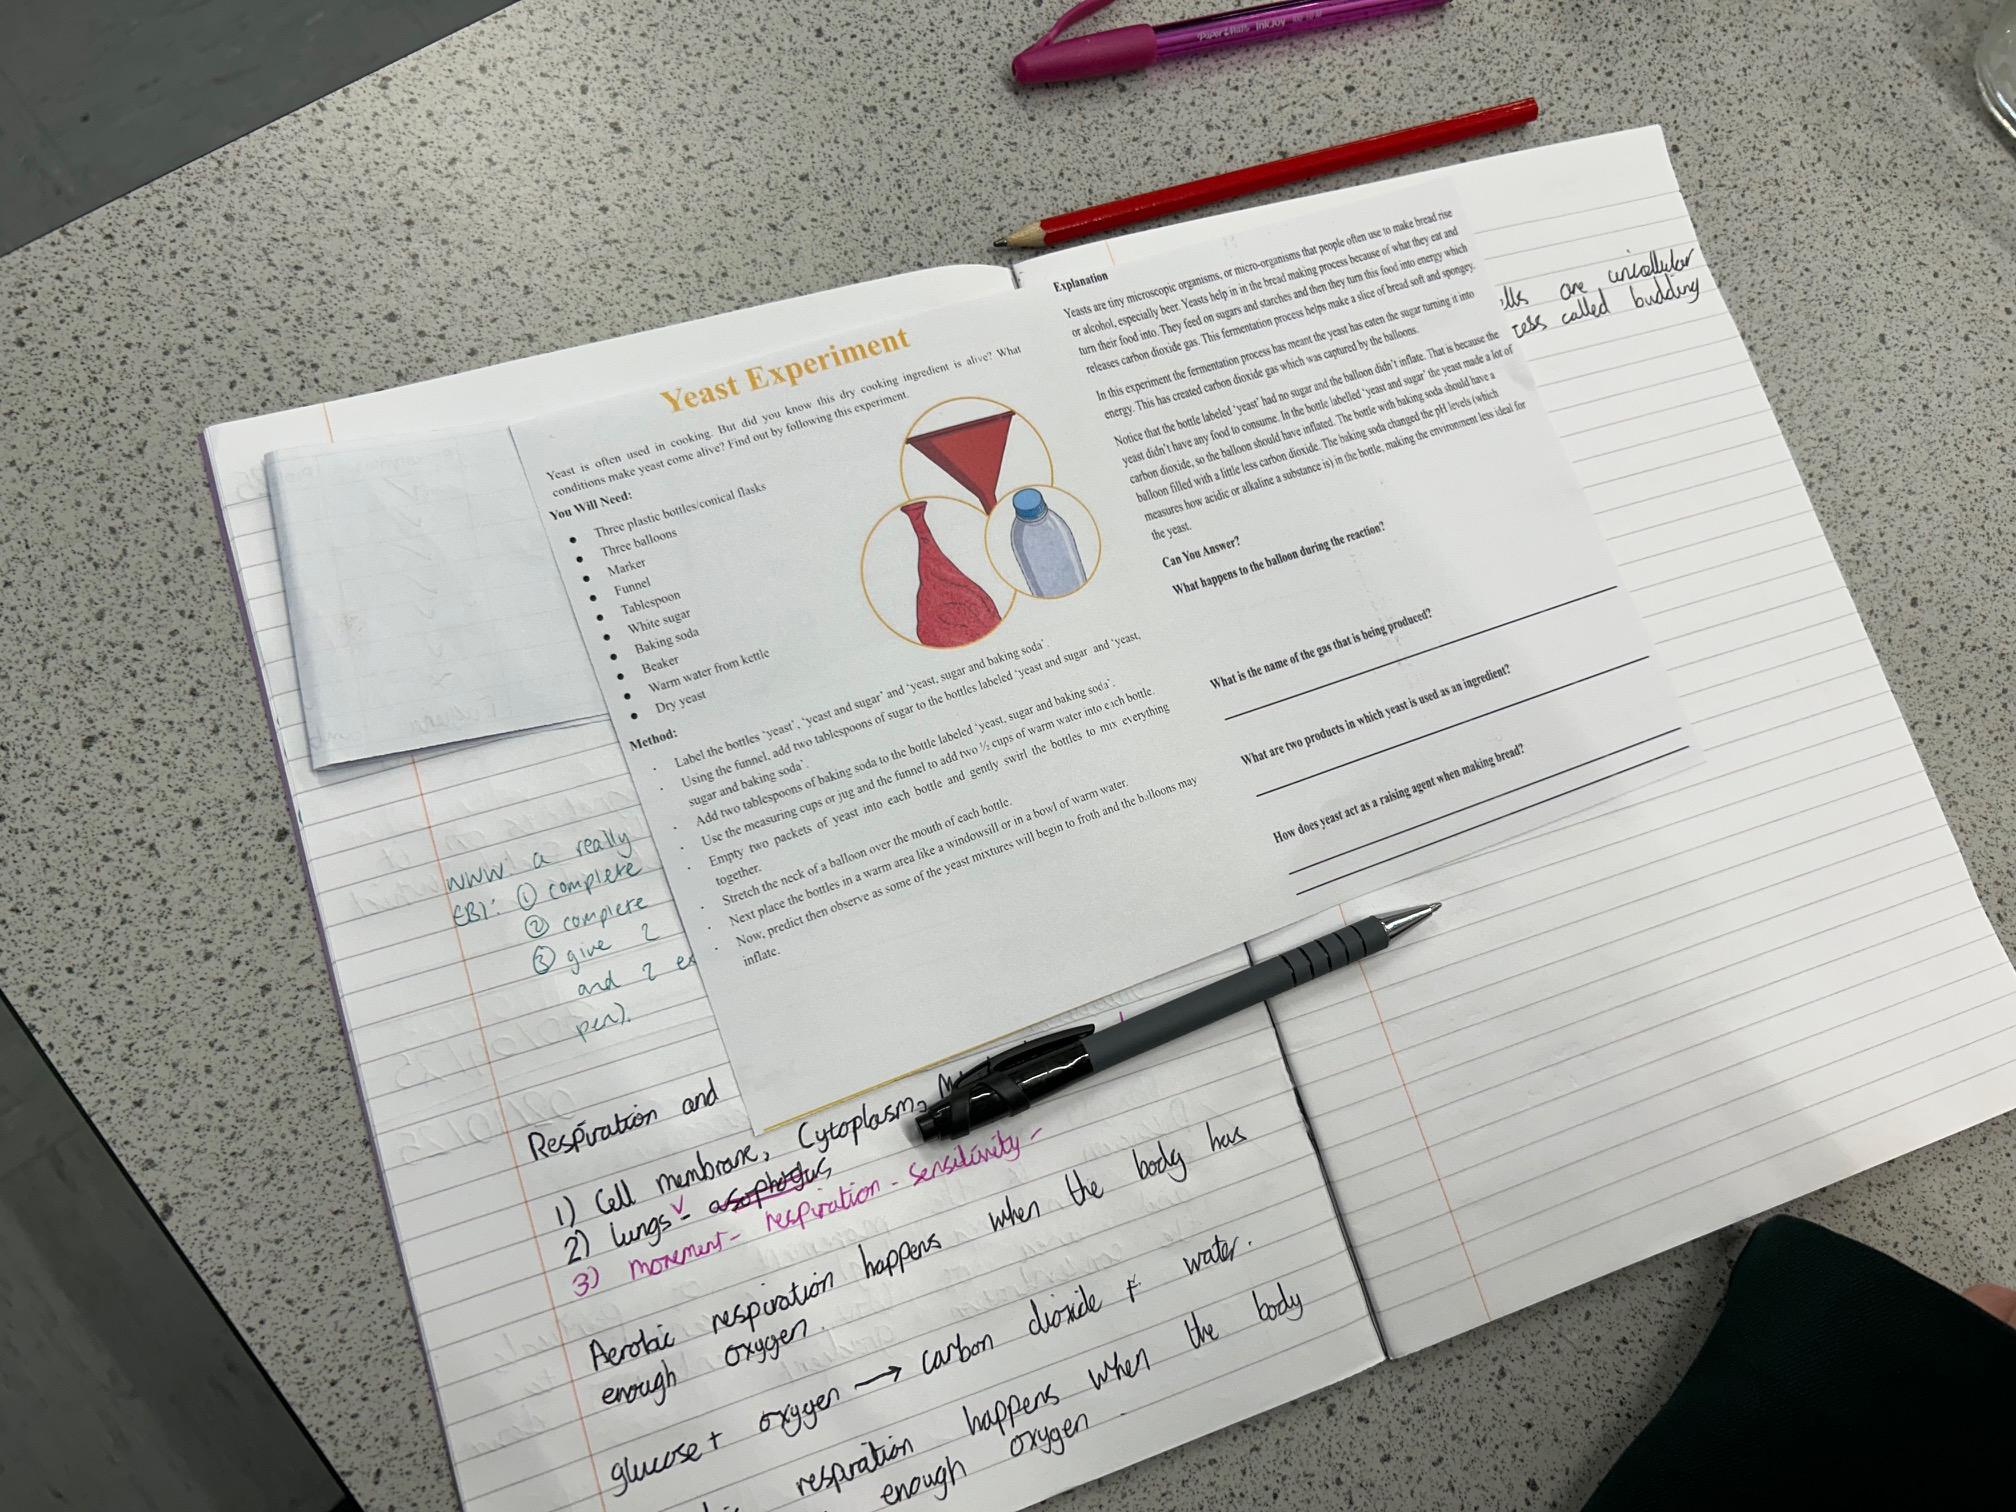 Paper Mate InkJoy
Yeast Experiment
Yeast is often used in cooking. But did you know this dry cooking ingredient is alive? What
conditions make yeast come alive? Find out by following this experiment.
You Will Need:
● Three plastic bottles/conical flasks
● Three balloons
● Marker
● Funnel
● Tablespoon
● White sugar
● Baking soda
● Beaker
● Warm water from kettle
● Dry yeast
Method:
· Label the bottles ‘yeast’, ‘yeast and sugar’ and ‘yeast, sugar and baking soda’.
· Using the funnel, add two tablespoons of sugar to the bottles labeled ‘yeast and sugar and ‘yeast,
sugar and baking soda’.
· Add two tablespoons of baking soda to the bottle labeled ‘yeast, sugar and baking soda’.
· Use the measuring cups or jug and the funnel to add two ½ cups of warm water into each bottle.
· Empty two packets of yeast into each bottle and gently swirl the bottles to mix everything
together.
· Stretch the neck of a balloon over the mouth of each bottle.
· Next place the bottles in a warm area like a windowsill or in a bowl of warm water.
· Now, predict then observe as some of the yeast mixtures will begin to froth and the balloons may
inflate.
Explanation
Yeasts are tiny microscopic organisms, or micro-organisms that people often use to make bread rise
or alcohol, especially beer. Yeasts help in in the bread making process because of what they eat and
turn their food into. They feed on sugars and starches and then they turn this food into energy which
releases carbon dioxide gas. This fermentation process helps make a slice of bread soft and spongey.
In this experiment the fermentation process has meant the yeast has eaten the sugar turning it into
energy. This has created carbon dioxide gas which was captured by the balloons.
Notice that the bottle labeled ‘yeast’ had no sugar and the balloon didn’t inflate. That is because the
yeast didn’t have any food to consume. In the bottle labelled ‘yeast and sugar’ the yeast made a lot of
carbon dioxide, so the balloon should have inflated. The bottle with baking soda should have a
balloon filled with a little less carbon dioxide. The baking soda changed the pH levels (which
measures how acidic or alkaline a substance is) in the bottle, making the environment less ideal for
the yeast.
Can You Answer?
What happens to the balloon during the reaction?
What is the name of the gas that is being produced?
What are two products in which yeast is used as an ingredient?
How does yeast act as a raising agent when making bread?
lls are unicellular
cess called budding
WWW a really
EBI: ① complete
② complete
③ give 2
and 2 ex
pen).
Respiration and
1) Cell membrane, Cytoplasm,
2) lungs ✓ -
3) movement - respiration - sensitivity -
Aerobic respiration happens when the body has
enough oxygen.
glucose + oxygen → carbon dioxide + water.
respiration happens when the body
enough oxygen